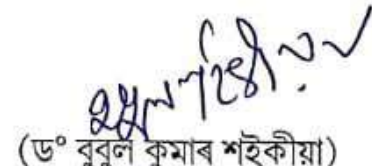 (ড° বুবুল কুমাৰ শইকীয়া)